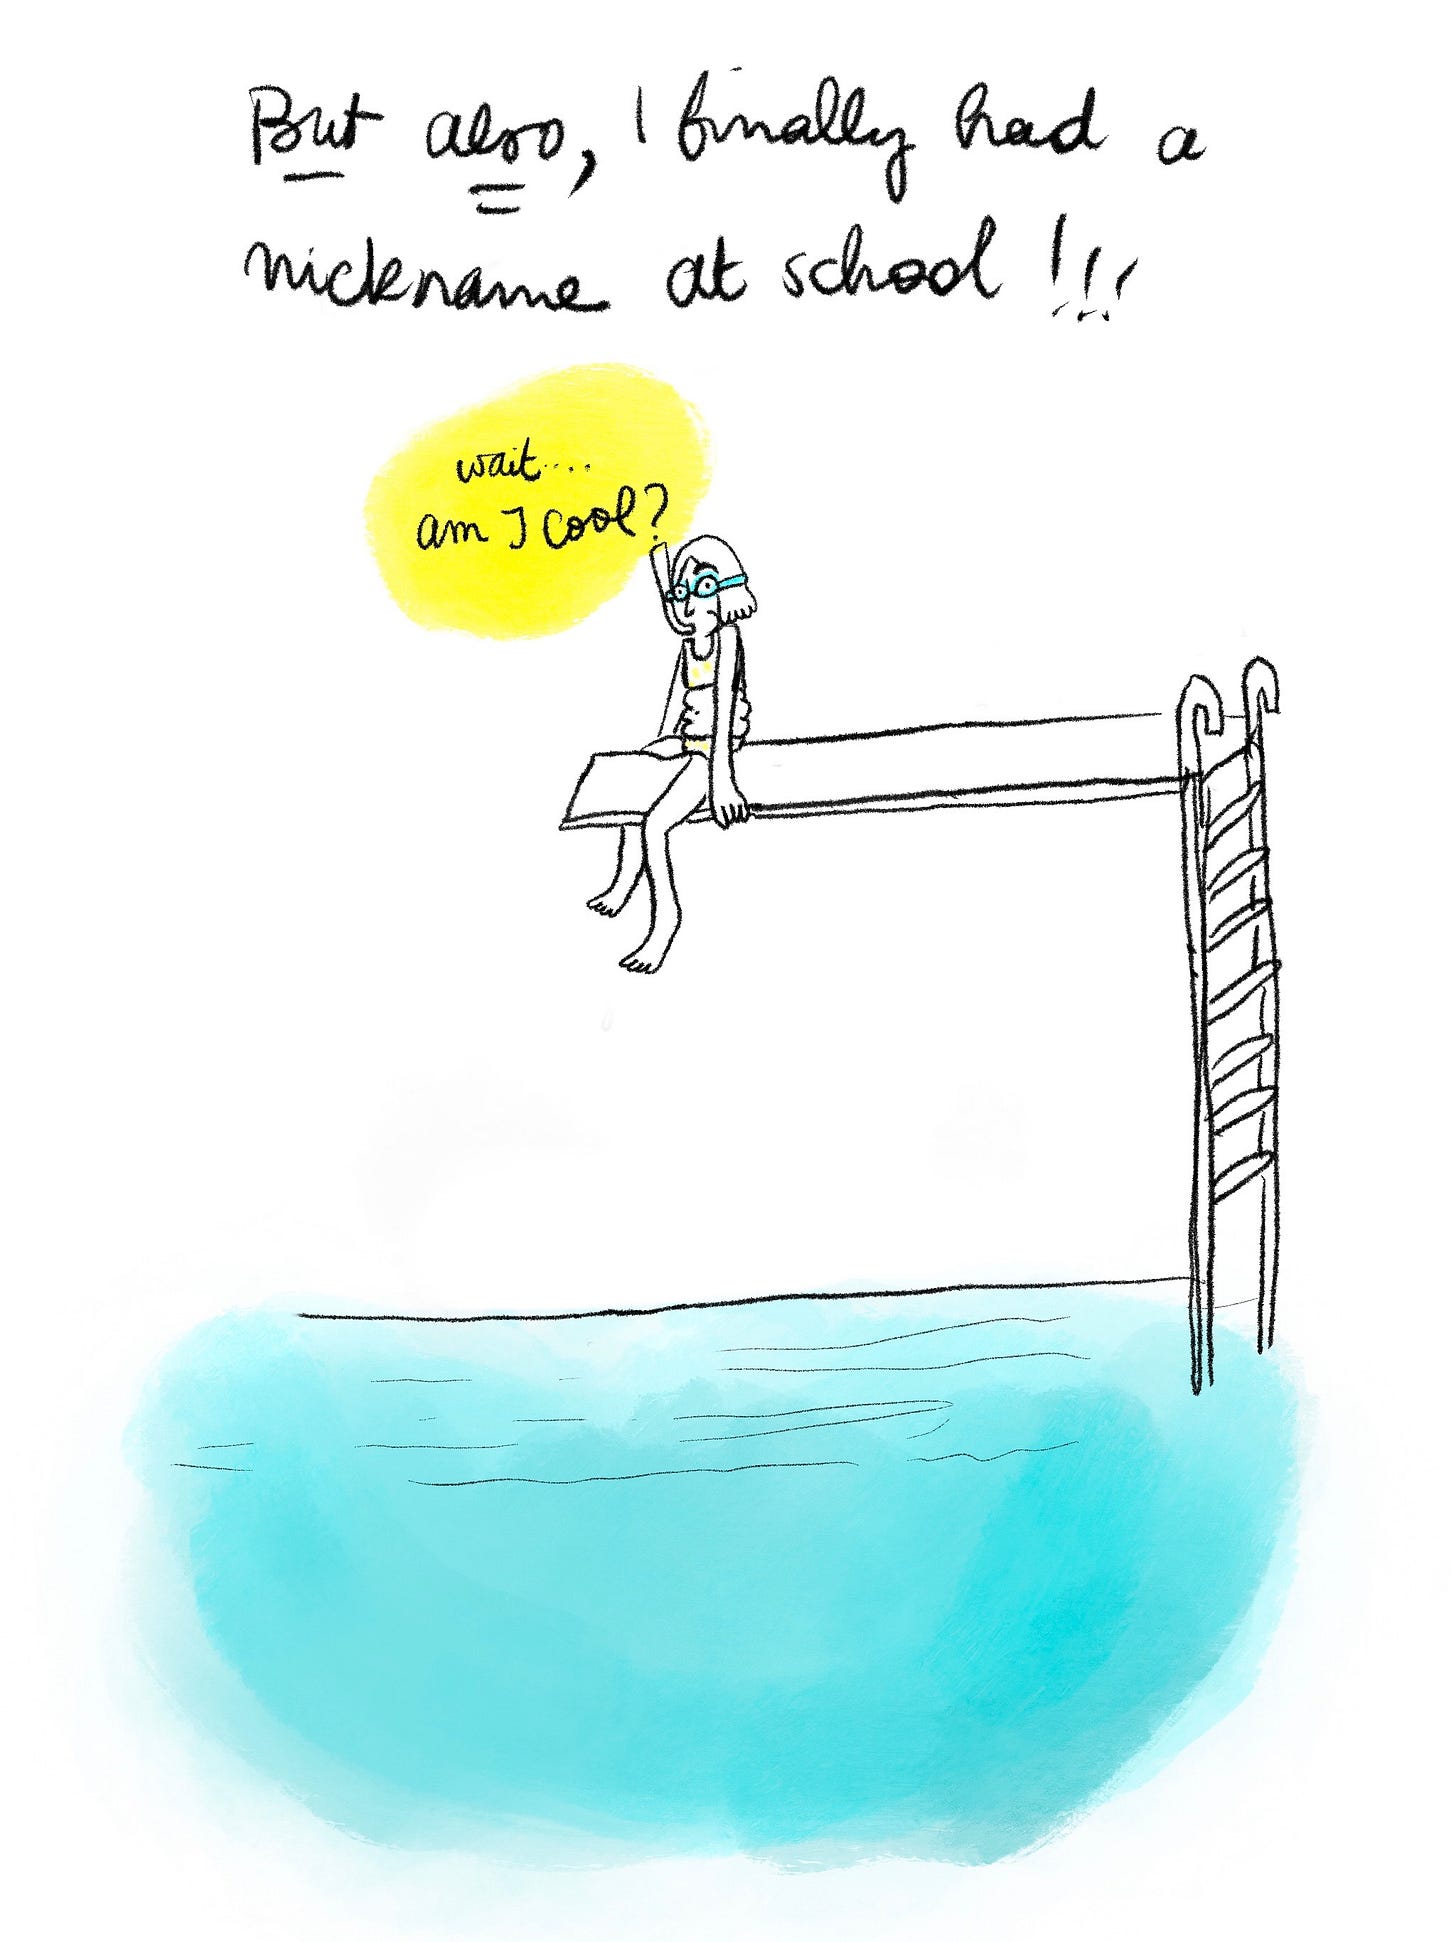 But also, I finally had a
nickname at school !!!
wait....
am I cool?